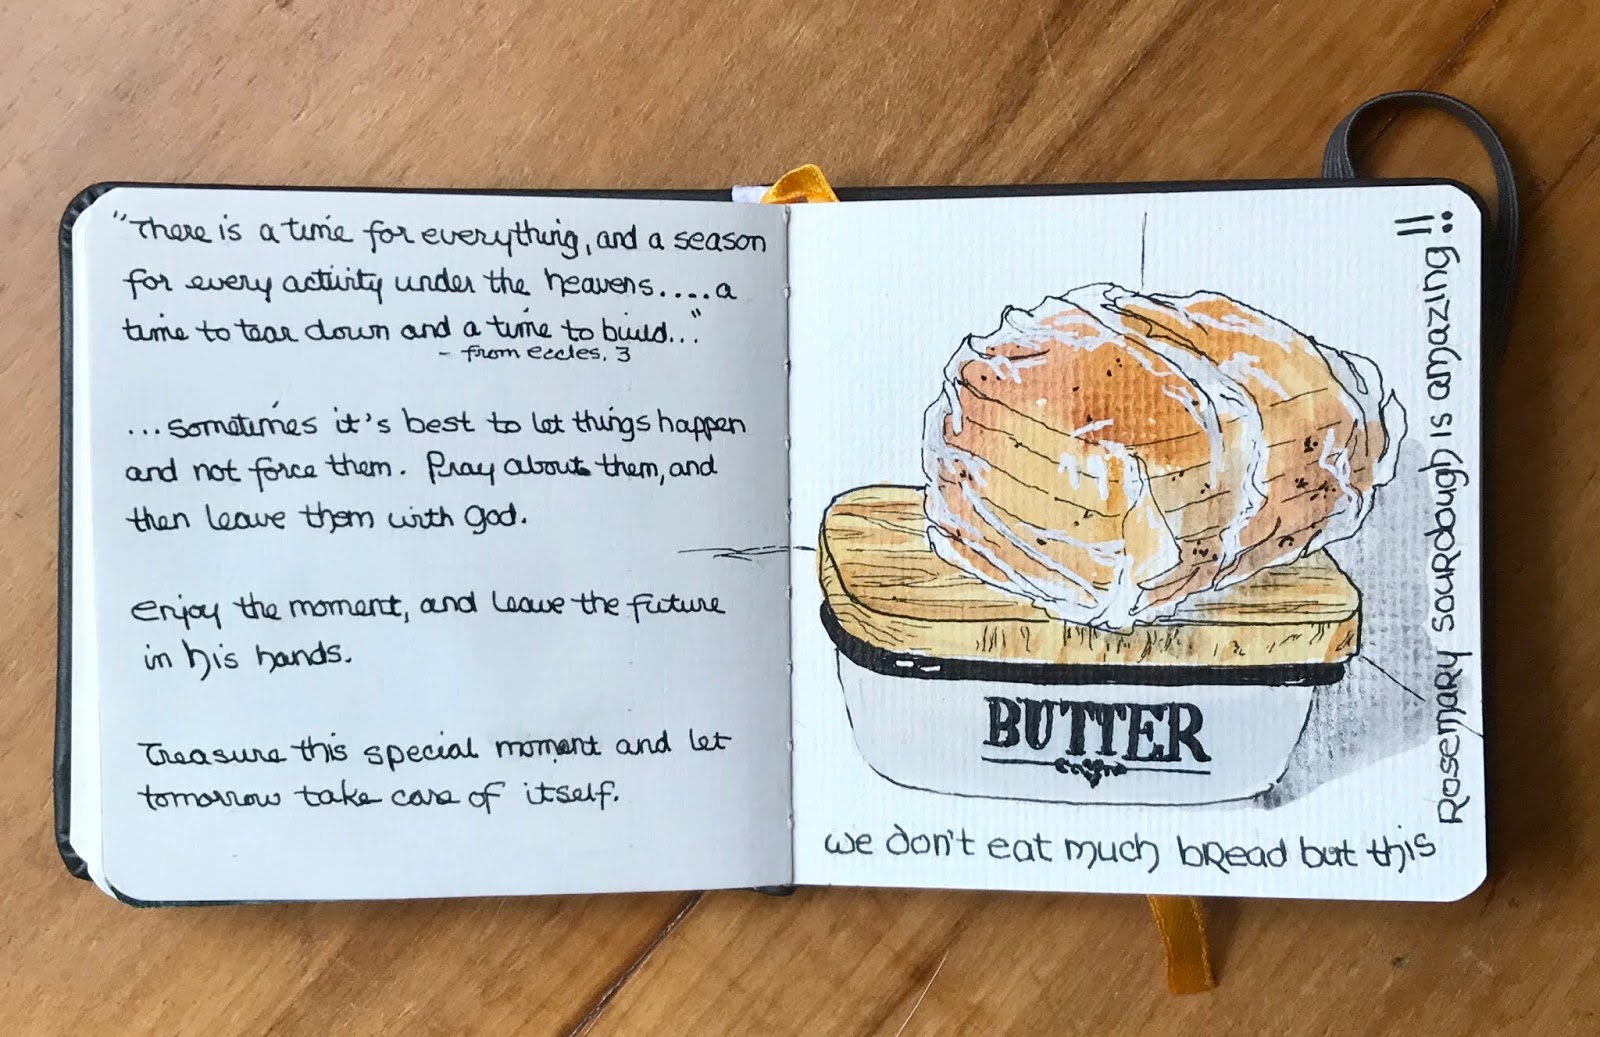 "There is a time for everything, and a season
for every activity under the heavens.....a
time to tear down and a time to build..."
- from eccles. 3
...sometimes it's best to let things happen
and not force them. Pray about them, and
then leave them with God.
enjoy the moment, and leave the future
in his hands.
Treasure this special moment and let
tomorrow take care of itself.
BUTTER
we don't eat much bread but this
Rosemary sourdough is amazing!!